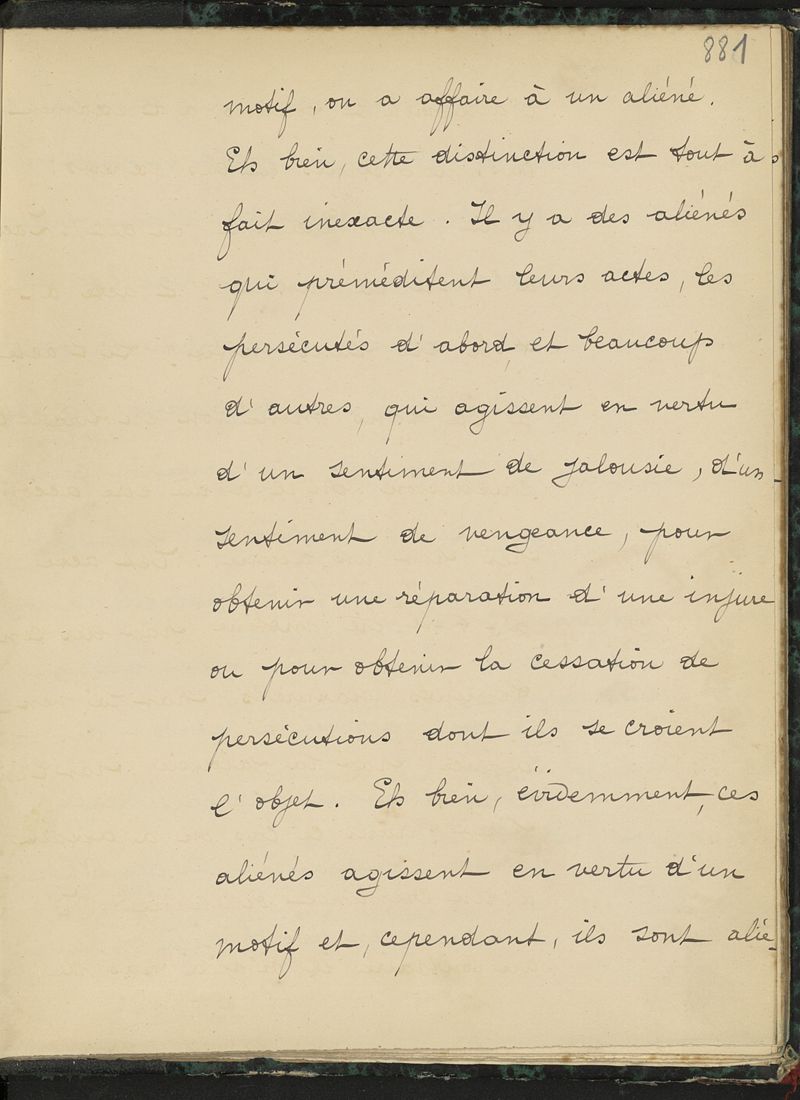 881
motif, on a affaire à un aliéné.
Eh bien, cette distinction est tout à
fait inexacte. Il y a des aliénés
qui préméditent leurs actes, les
persécutés d'abord et beaucoup
d'autres, qui agissent en vertu
d'un sentiment de jalousie, d'un
sentiment de vengeance, pour
obtenir une réparation d'une injure
ou pour obtenir la cessation de
persécutions dont ils se croient
l'objet. Eh bien, évidemment, ces
aliénés agissent en vertu d'un
motif et, cependant, ils sont alié-